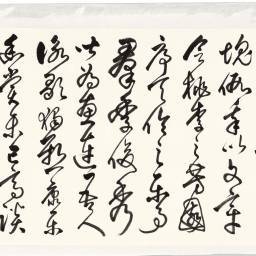 塊假我以文章
會桃李之芳園
序天倫之樂事
群季俊秀
皆為惠連吾人
詠歌獨慚康樂
幽賞未已高談